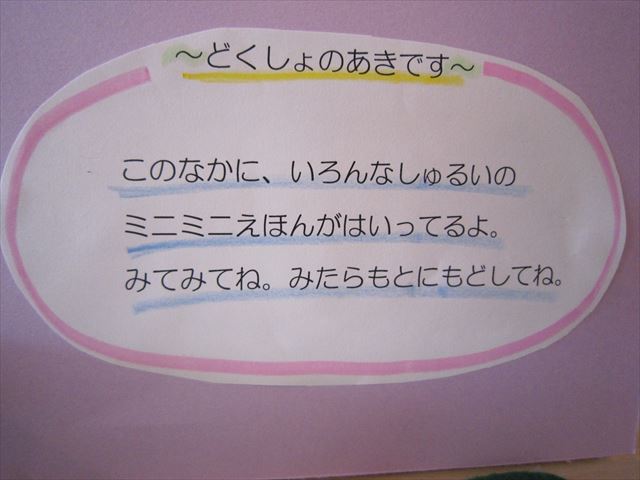 ～どくしょのあきです～
このなかに、いろんなしゅるいの
ミニミニえほんがはいってるよ。
みてみてね。みたらもとにもどしてね。